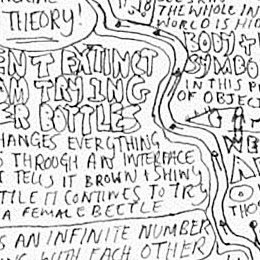 THEORY!
ENT EXTINCT
AM TRYING
ER BOTTLES
HANGES EVERYTHING
THROUGH AN INTERFACE
TELLS IT BROWN + SHINY
TTLE IT CONTINUES TO TRY
A FEMALE BEETLE
S AN INFINITE NUMBER
WITH EACH OTHER
THE WHOLE IN
WORLD IS HID
BODY +
SYMBO
IN THIS P
OF OBJEC
THO